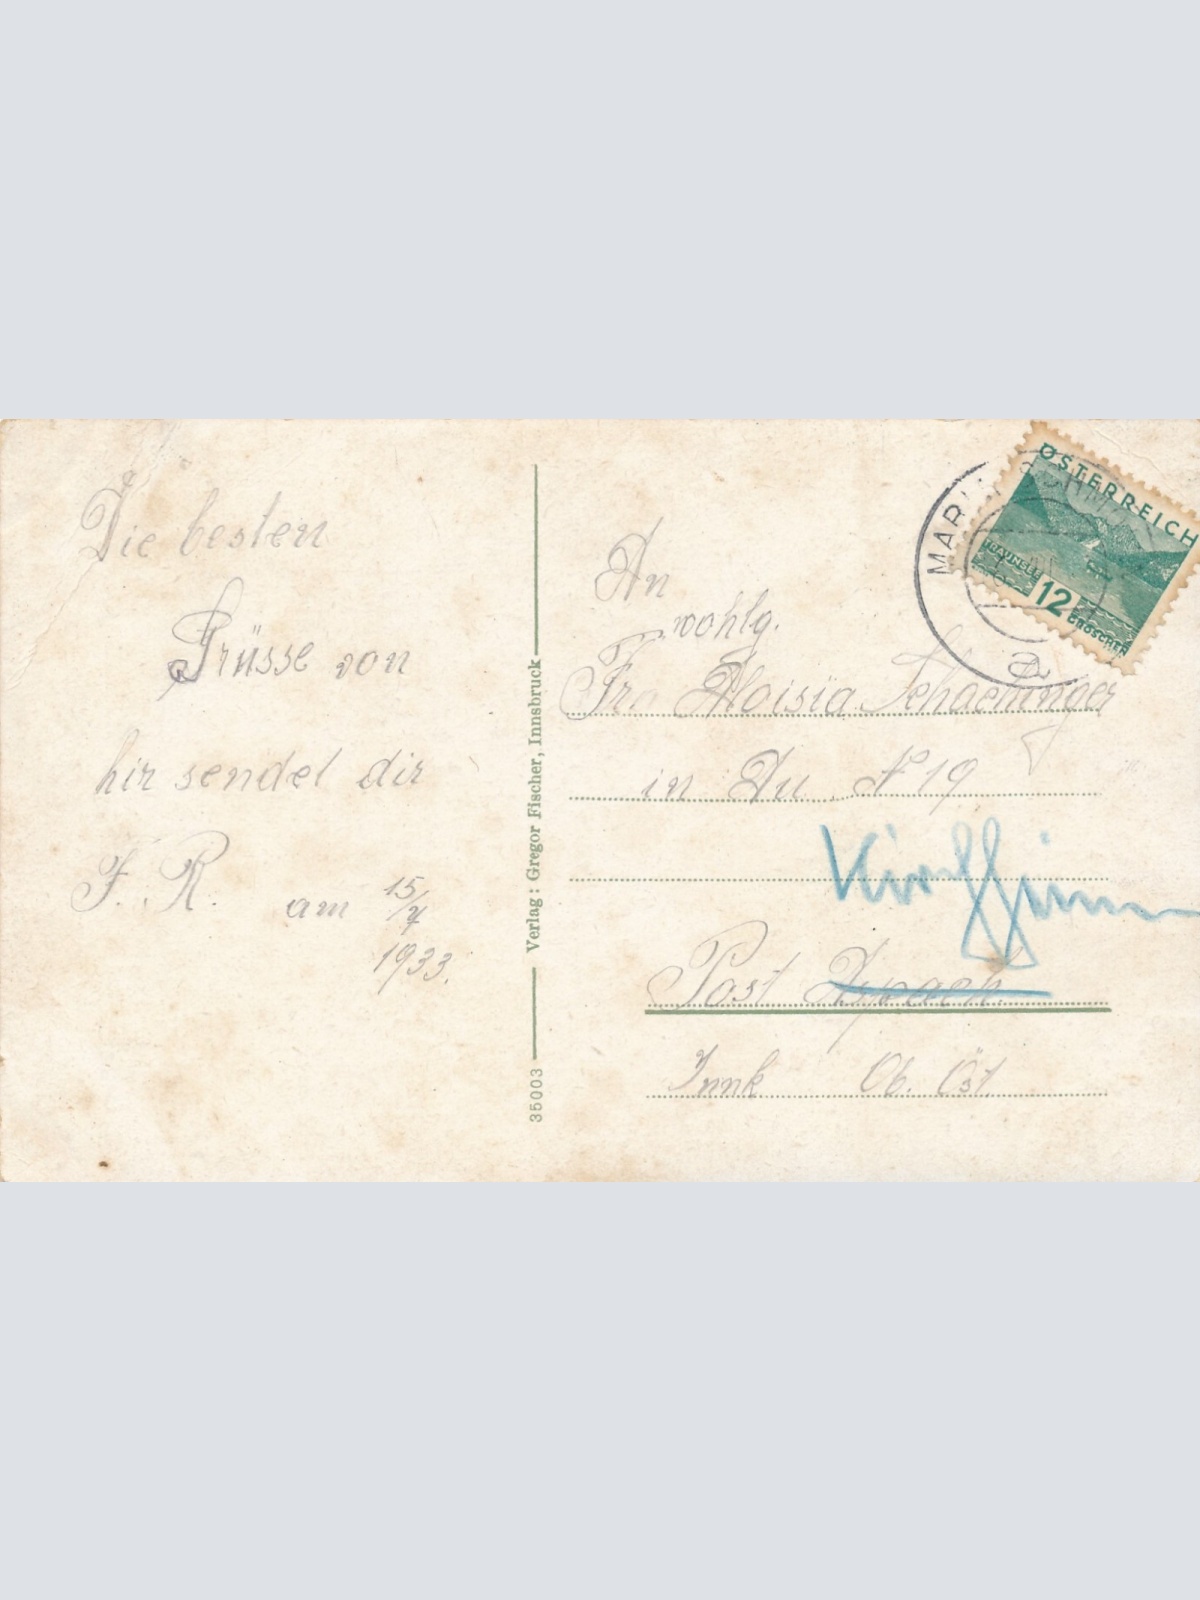 Die besten
Grüsse von
hir sendet dir
F. R. am 15/7
1933.
Verlag: Gregor Fischer, Innsbruck
35003
ÖSTERREICH
TRAUNSEE
12
GROSCHEN
a
An
wohlg.
Fr. Aloisia Schachinger
in Au № 19
Post Aspach
Innk Ob. Öst.